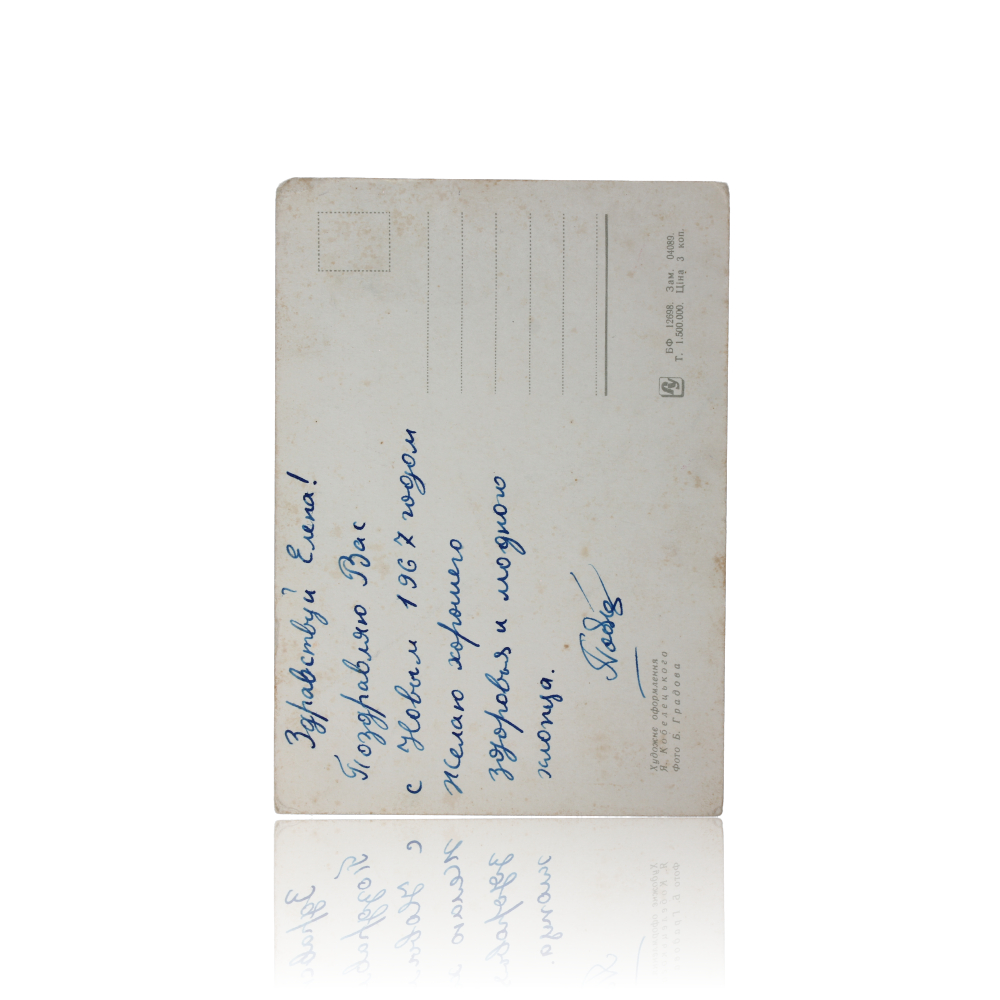 Здравствуй Елена!
Поздравляю Вас
с Новым 1967 годом
Желаю хорошего
здоровья и модного
хлопца.
Художнє оформлення
Я. Кобелецького
Фото Б. Градова
БФ 12698. Зам. 04089.
Т. 1.500.000. Ціна 3 коп.